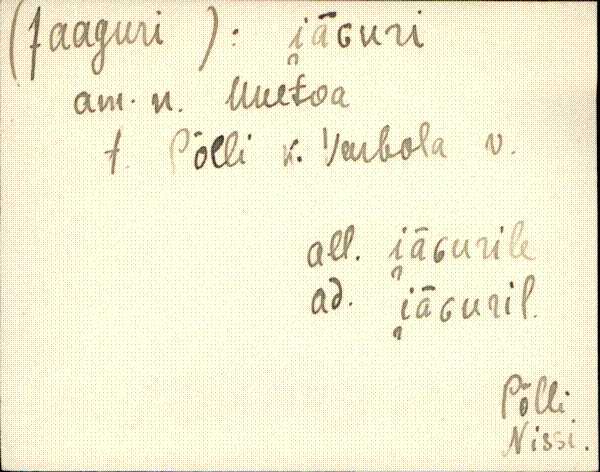 (Jaaguri): i̯āɢuri
am. n. Muetoa
t. Põlli k. Varbola v.
all. i̯āɢurile
ad. i̯āɢuril.
Põlli
Nissi.